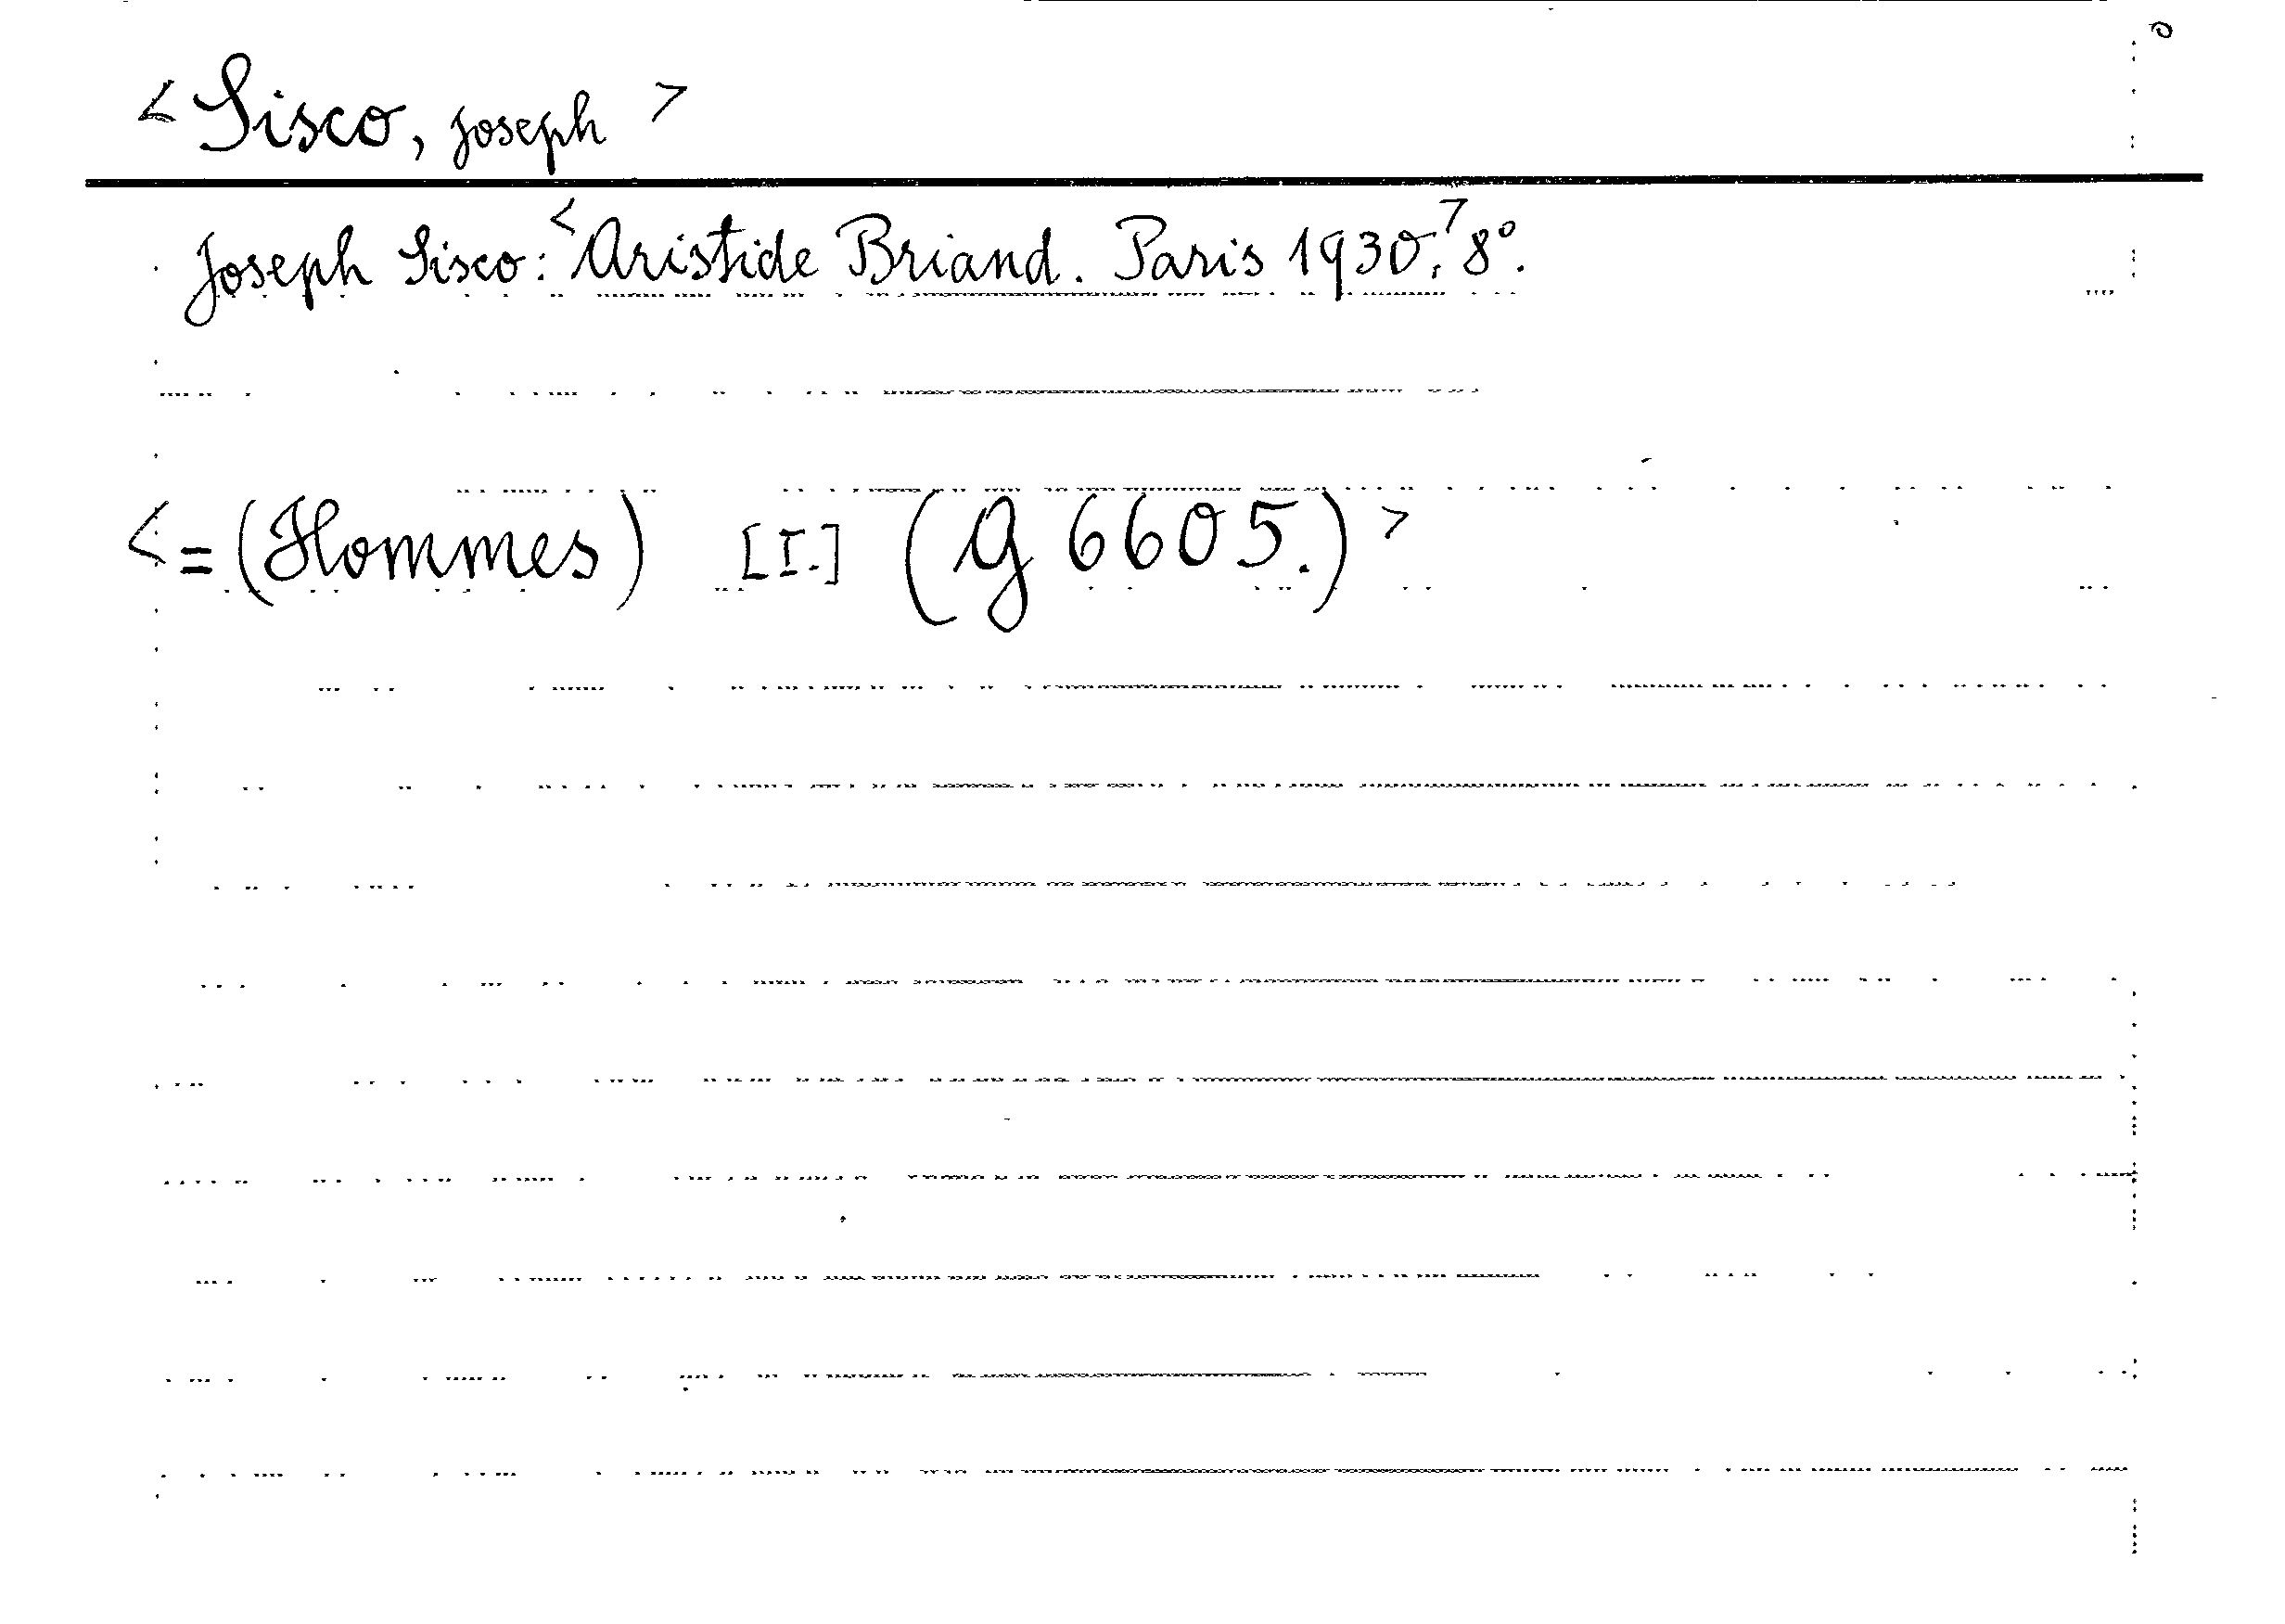 <Sisco, Joseph>
Joseph Sisco: <Aristide Briand. Paris 1930.> 8°.
<=(Hommes) [I.] (G 6605.)>